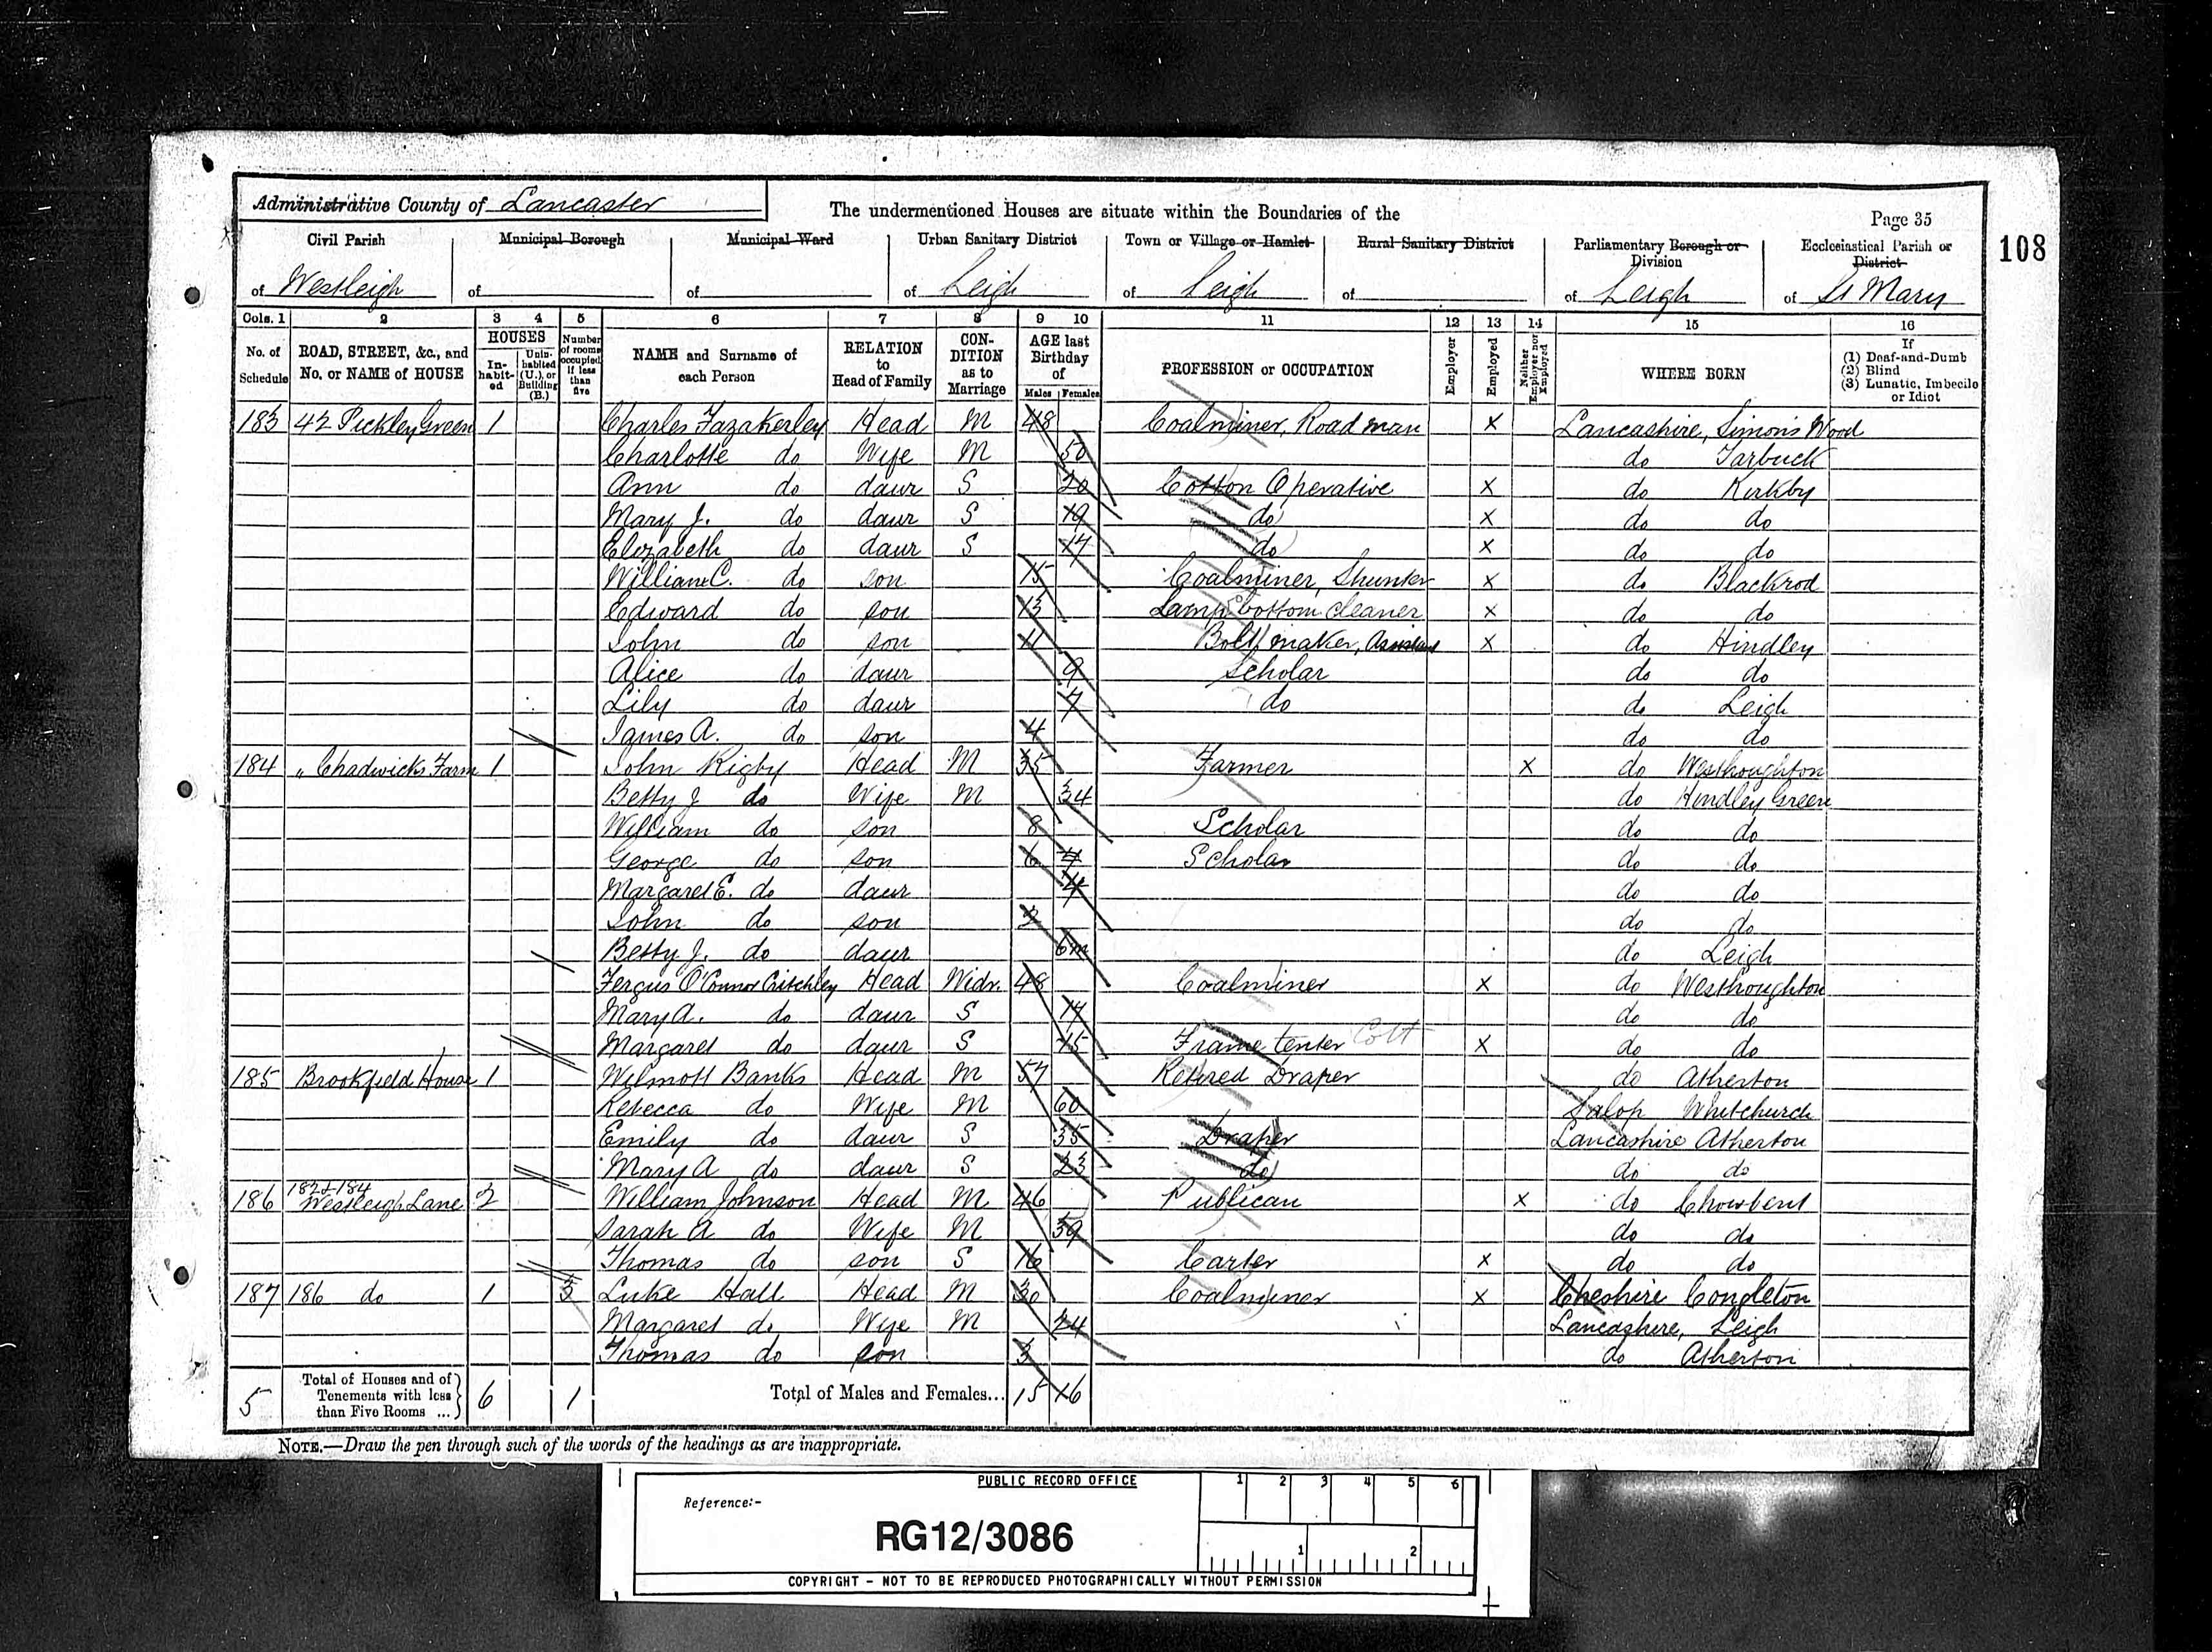 Administrative County of Lancaster
The undermentioned Houses are situate within the Boundaries of the
Page 35
108
Civil Parish of Westleigh
Municipal Borough of
Municipal Ward of
Urban Sanitary District of Leigh
Town or Village or Hamlet of Leigh
Rural Sanitary District of
Parliamentary Borough or Division of Leigh
Ecclesiastical Parish or District of St Mary
Cols. 1 2 3 4 5 6 7 8 9 10 11 12 13 14 15 16
No. of Schedule
ROAD, STREET, &c., and No. or NAME of HOUSE
HOUSES
In-habit-ed
Unin-habited (U.), or Building (B.)
Number of rooms occupied if less than five
NAME and Surname of each Person
RELATION to Head of Family
CON-DITION as to Marriage
AGE last Birthday of
Males Females
PROFESSION or OCCUPATION
Employer
Employed
Neither Employer nor Employed
WHERE BORN
If
(1) Deaf-and-Dumb
(2) Blind
(3) Lunatic, Imbecile or Idiot
183 42 Pickley Green 1 Charles Fazakerley Head M 48 Coalminer, Road man X Lancashire, Simons Wood
Charlotte do Wife M 50 do Tarbuck
Ann do daur S 20 Cotton Operative X do Kirkby
Mary J. do daur S 19 do X do do
Elizabeth do daur S 17 do X do do
William C. do son 15 Coalminer, Shunter X do Blackrod
Edward do son 13 Lamp bottom cleaner X do do
John do son 11 Bolt maker, Assistant X do Hindley
Alice do daur 9 Scholar do do
Lily do daur 7 do do Leigh
James A. do son 4 do do
184 " Chadwicks Farm 1 John Rigby Head M 35 Farmer X do Westhoughton
Betty J do Wife M 34 do Hindley Green
William do son 8 Scholar do do
George do son 6 4 Scholar do do
Margaret E. do daur 4 do do
John do son 2 do do
Betty J. do daur 6m do Leigh
Fergus O'Connor Critchley Head Widr. 48 Coalminer X do Westhoughton
Mary A. do daur S 17 do do
Margaret do daur S 15 Frame tenter Cott X do do
185 Brookfield House 1 Wilmott Banks Head M 57 Retired Draper do Atherton
Rebecca do Wife M 60 Salop Whitchurch
Emily do daur S 35 Draper Lancashire Atherton
Mary A do daur S 23 do do do
186 182 & 184 Westleigh Lane 2 William Johnson Head M 46 Publican X do Chowbent
Sarah A do Wife M 39 do do
Thomas do son S 16 Carter X do do
187 186 do 1 3 Luke Hall Head M 30 Coalminer X Cheshire Congleton
Margaret do Wife M 24 Lancashire, Leigh
Thomas do son 3 do Atherton
5 Total of Houses and of Tenements with less than Five Rooms ... 6 1 Total of Males and Females... 15 16
NOTE.—Draw the pen through such of the words of the headings as are inappropriate.
PUBLIC RECORD OFFICE
1 2 3 4 5 6
Reference:-
RG12/3086
1 2
COPYRIGHT - NOT TO BE REPRODUCED PHOTOGRAPHICALLY WITHOUT PERMISSION